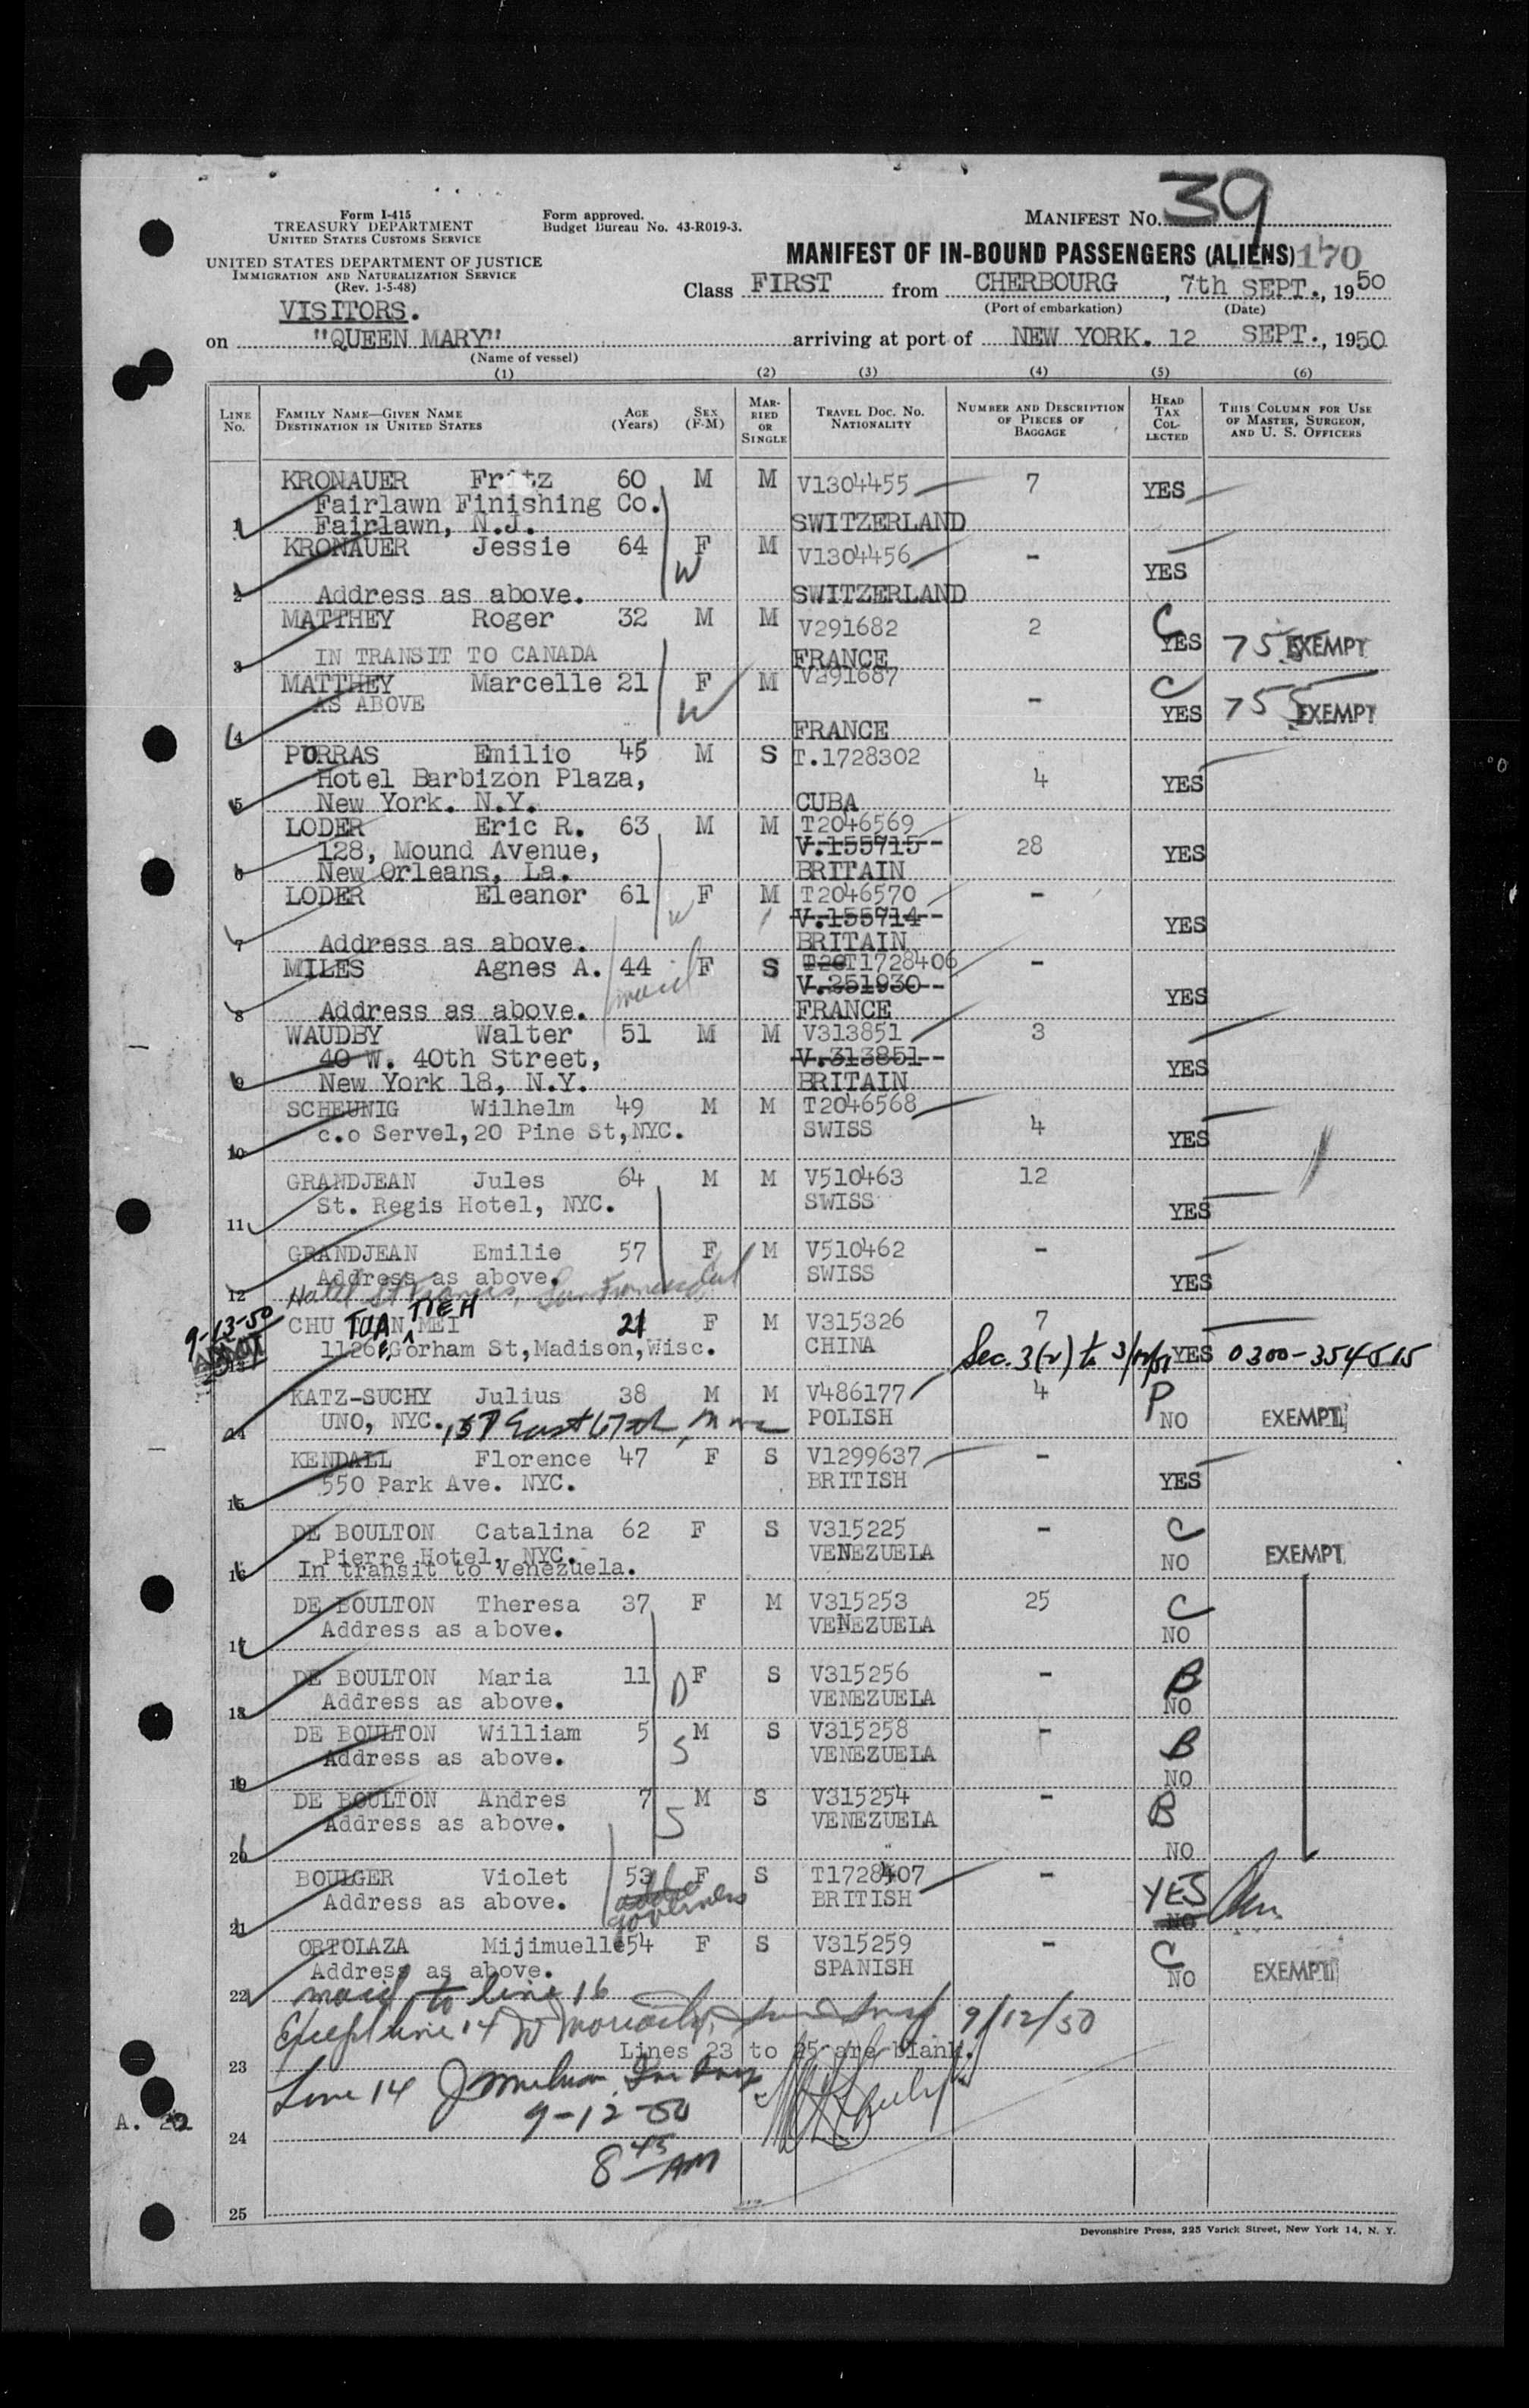 Form I-415
TREASURY DEPARTMENT
UNITED STATES CUSTOMS SERVICE
UNITED STATES DEPARTMENT OF JUSTICE
IMMIGRATION AND NATURALIZATION SERVICE
(Rev. 1-5-48)
Form approved.
Budget Bureau No. 43-R019-3.
MANIFEST NO. 39
MANIFEST OF IN-BOUND PASSENGERS (ALIENS) 170
Class FIRST from CHERBOURG, 7th SEPT., 1950
(Port of embarkation) (Date)
VISITORS.
on "QUEEN MARY" arriving at port of NEW YORK. 12 SEPT., 1950
(Name of vessel)
(1) (2) (3) (4) (5) (6)
LINE NO. FAMILY NAME—GIVEN NAME DESTINATION IN UNITED STATES AGE (Years) SEX (F-M) MARRIED OR SINGLE TRAVEL DOC. NO. NATIONALITY NUMBER AND DESCRIPTION OF PIECES OF BAGGAGE HEAD TAX COLLECTED THIS COLUMN FOR USE OF MASTER, SURGEON, AND U. S. OFFICERS
KRONAUER Fritz 60 M M V1304455 7 YES
Fairlawn Finishing Co.
1 Fairlawn, N.J. SWITZERLAND
KRONAUER Jessie 64 F M V1304456 - YES
W
2 Address as above. SWITZERLAND
MATTHEY Roger 32 M M V291682 2 C YES 755 EXEMPT
3 IN TRANSIT TO CANADA FRANCE
MATTHEY Marcelle 21 F M V291687 - C YES 755 EXEMPT
AS ABOVE W
4 FRANCE
PORRAS Emilio 45 M S T.1728302 4 YES
Hotel Barbizon Plaza,
5 New York. N.Y. CUBA
LODER Eric R. 63 M M T2046569 28 YES
128, Mound Avenue, V.155715--
6 New Orleans, La. BRITAIN
LODER Eleanor 61 F M T2046570 - YES
W V.155714--
7 Address as above. BRITAIN
MILES Agnes A. 44 F S T20T1728406 - YES
maid V.251930--
8 Address as above. FRANCE
WAUDBY Walter 51 M M V313851 3 YES
40 W. 40th Street, V.313851--
9 New York 18, N.Y. BRITAIN
SCHEUNIG Wilhelm 49 M M T2046568 4 YES
10 c.o Servel,20 Pine St,NYC. SWISS
GRANDJEAN Jules 64 M M V510463 12 YES
11 St. Regis Hotel, NYC. SWISS
GRANDJEAN Emilie 57 F M V510462 - YES
12 Address as above. SWISS
Hotel St Francis, San Francisco Cal
9-13-50 TIEH
CHU TUAN MEI 21 F M V315326 7
13 1126 E. Gorham St,Madison,Wisc. CHINA Sec. 3(2) to YES 0300-354515
KATZ-SUCHY Julius 38 M M V486177 4 P NO EXEMPT
14 UNO, NYC. East 67th POLISH
KENDALL Florence 47 F S V1299637 - YES
15 550 Park Ave. NYC. BRITISH
DE BOULTON Catalina 62 F S V315225 - C NO EXEMPT
Pierre Hotel, NYC. VENEZUELA
16 In transit to Venezuela.
DE BOULTON Theresa 37 F M V315253 25 C NO
17 Address as above. VENEZUELA
DE BOULTON Maria 11 D F S V315256 - B NO
18 Address as above. VENEZUELA
DE BOULTON William 5 M S V315258 - B NO
19 Address as above. S VENEZUELA
DE BOULTON Andres 7 M S V315254 - B NO
20 Address as above. S VENEZUELA
BOULGER Violet 53 F S T1728407 - YES NO
21 Address as above. governess BRITISH
ORTOLAZA Mijimuelle 54 F S V315259 - C NO EXEMPT
22 Address as above. SPANISH
maid to line 16
Except line 14 9/12/50
Lines 23 to 25 are blank.
23
Line 14
9-12-50
A. 22
24
8 45 AM
25
Devonshire Press, 225 Varick Street, New York 14, N. Y.